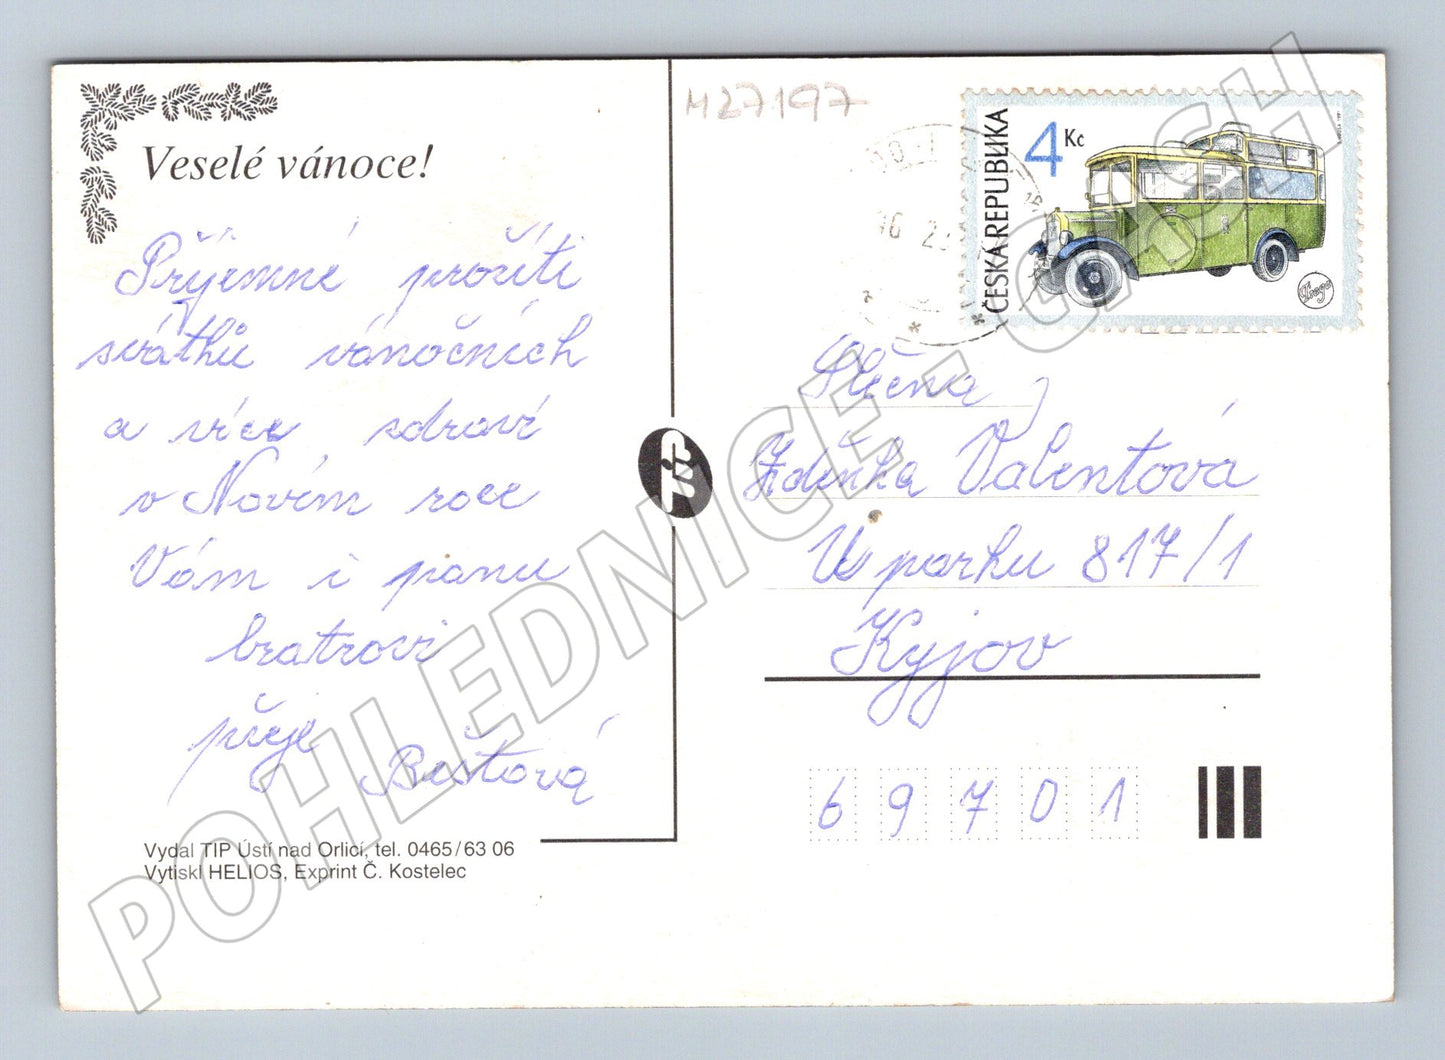 Veselé vánoce!
Příjemné prožití
svátků vánočních
a více zdraví
v Novém roce
Vám i panu
bratrovi
přeje Bartová
Vydal TIP Ústí nad Orlicí, tel. 0465/63 06
Vytiskl HELIOS, Exprint Č. Kostelec
M27197
ČESKÁ REPUBLIKA
4 Kč
Praga
Slečna
Zdeňka Valentová
U parku 817/1
Kyjov
69701
tip
POHLEDNICE - CASH